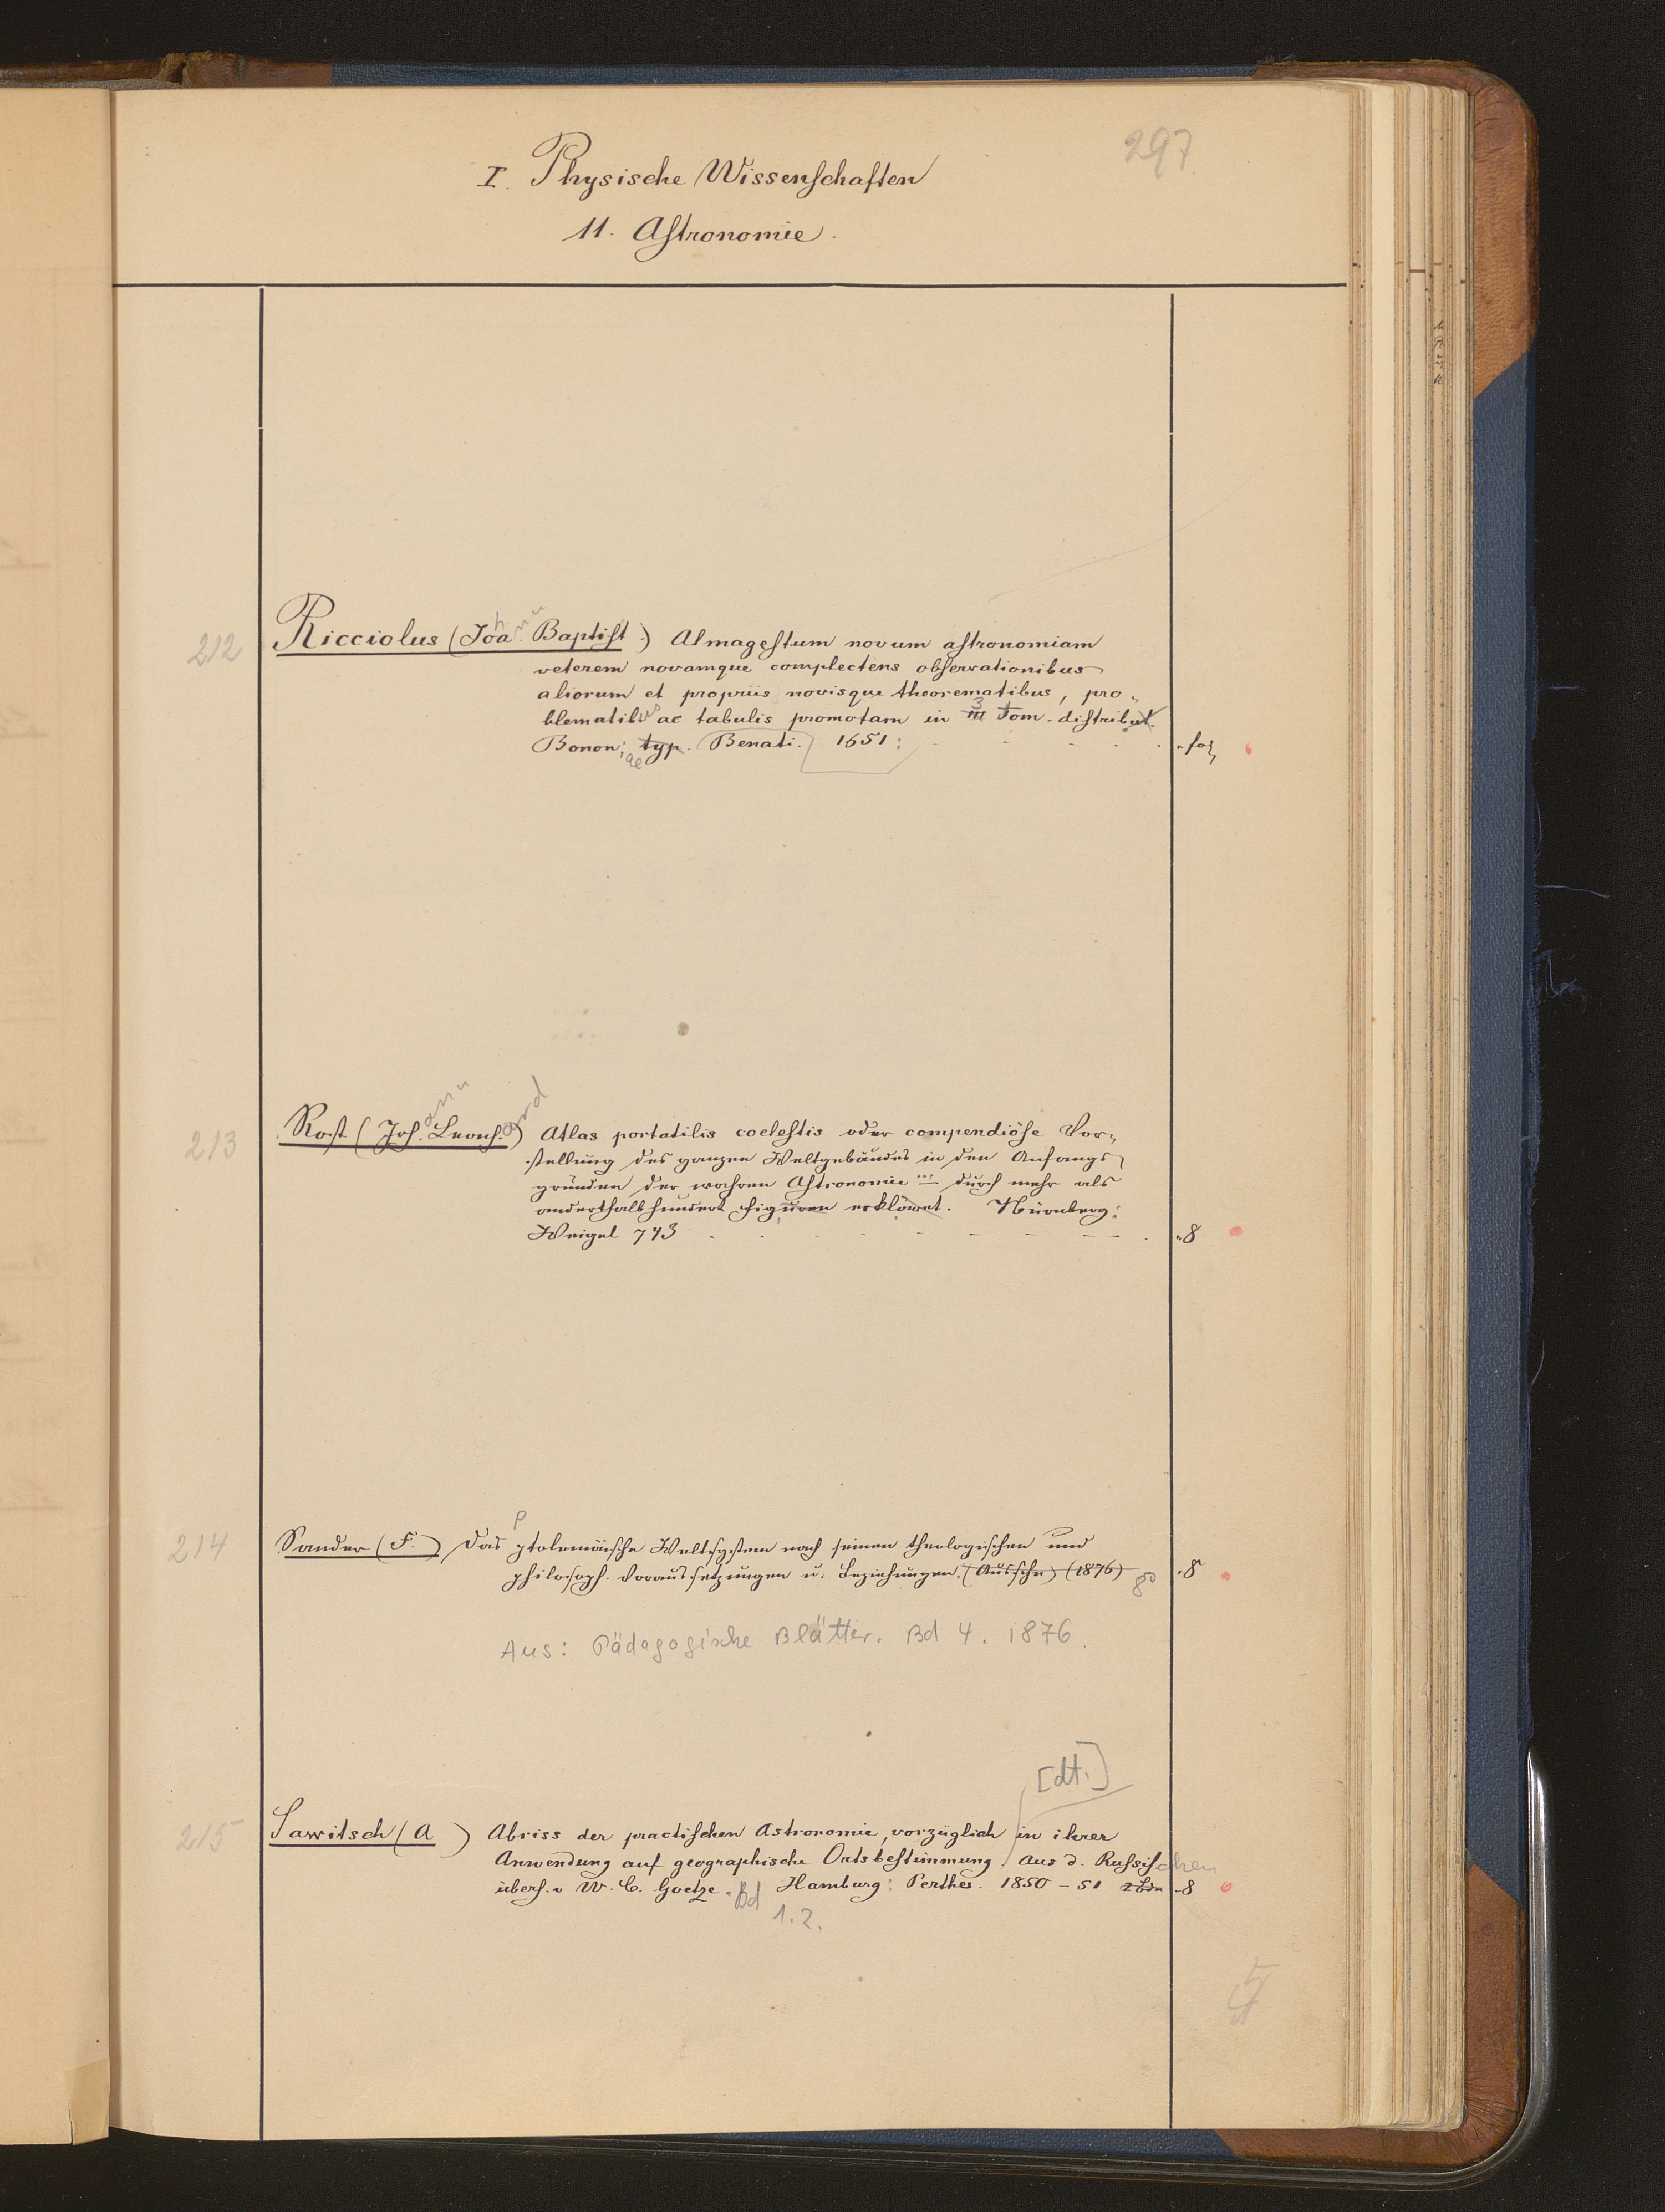 297
I. Physische Wissenschaften
11. Astronomie.
212 Ricciolus (Joa Baptist.) Almagestum novum astronomiam
veterem novamque complectens observationibus
aliorum et propriis novisque theorematibus, pro„
blematibus ac tabulis promotam in 3 III Tom. distribut
Bononiae typ. Benati. 1651: fol
213 Rost (Joh.ann Leonh.ard) Atlas portatilis coelestis oder compendiöse Vor„
stellung des ganzen Weltgebäudes in den Anfangs
gründen der wahren Astronomie ... durch mehr als
anderthalbhundert Figuren erkläret. Nürnberg:
Weigel 743 8
214 Sander (F.) Das ptolemäische Weltsystem nach seinen theologischen und
philosoph. Voraussetzungen u. Beziehungen. (Ausschn) (1876) 8° 8
Aus: Pädagogische Blätter. Bd 4. 1876.
[dt.]
215 Sawitsch (A ) Abriss der practischen Astronomie, vorzüglich in ihrer
Anwendung auf geographische Ortsbestimmung. Aus d. Russischen
übers. v W. C. Goetze. Bd Hamburg: Perthes. 1850 - 51 2 Bde 8
1.2.